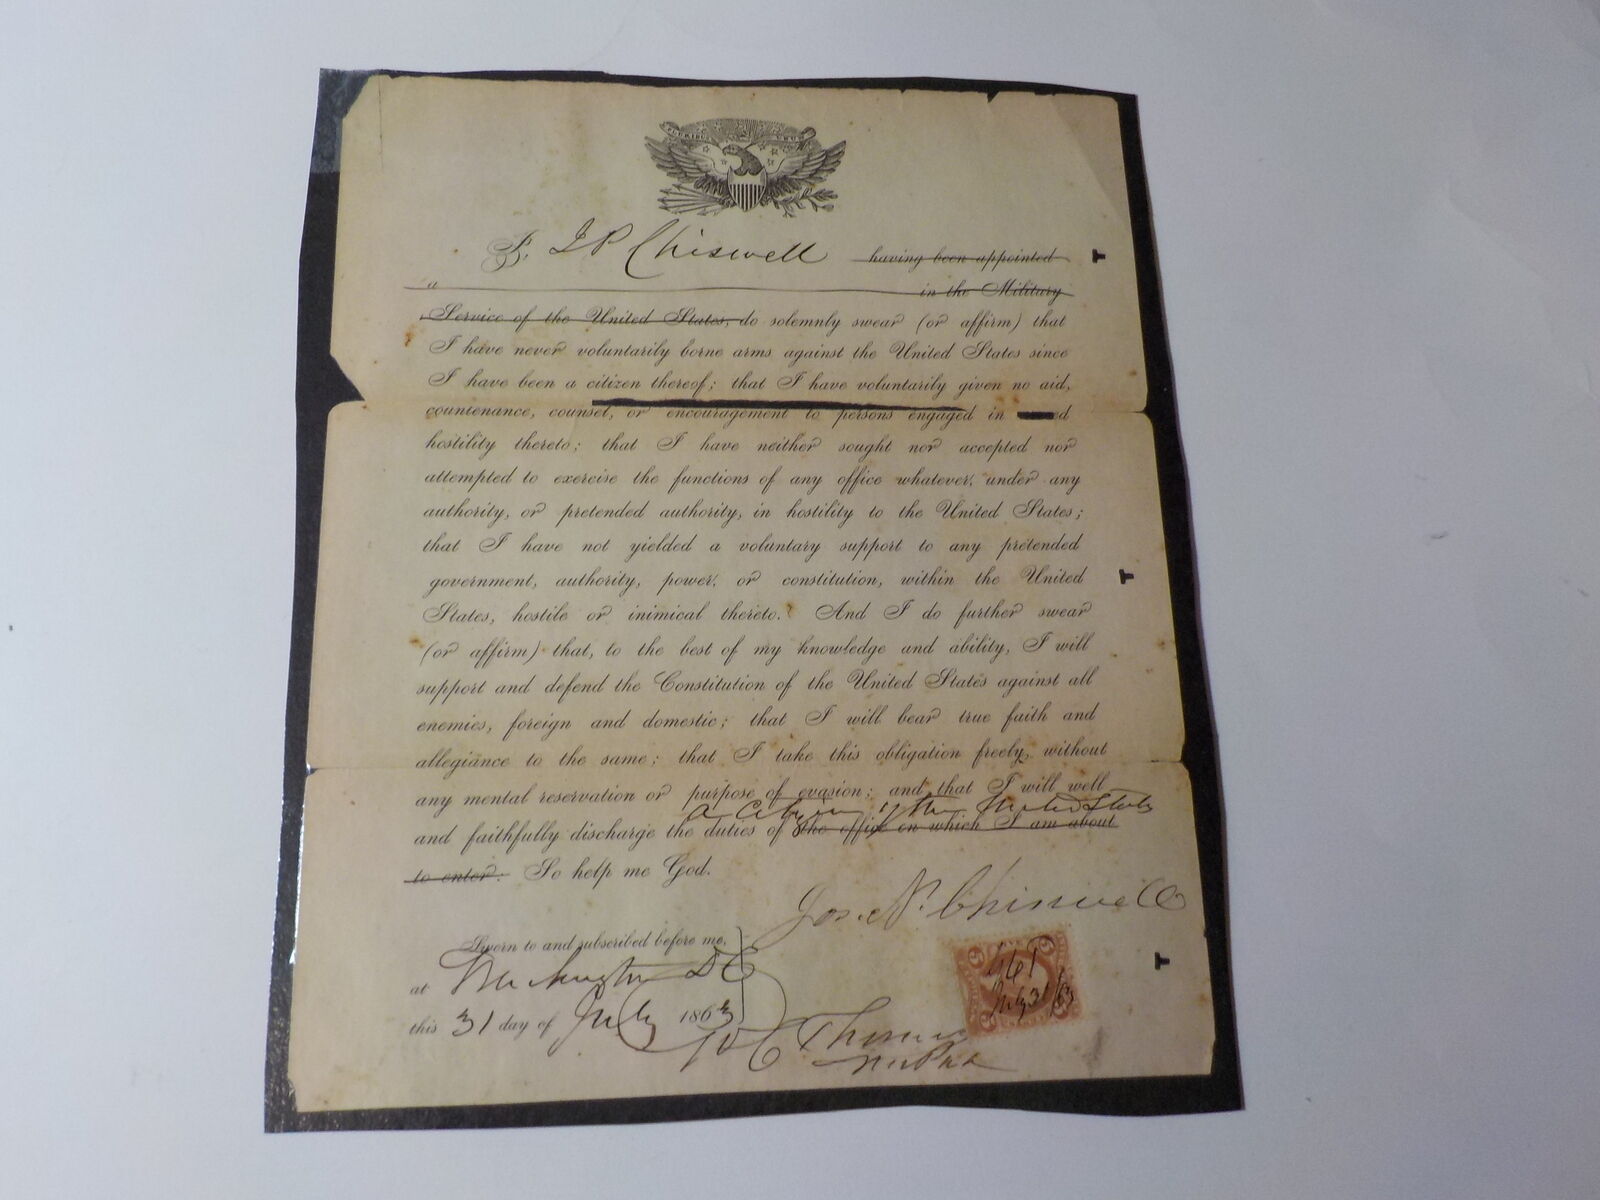 E PLURIBUS UNUM
I, J P Chiswell having been appointed
a in the Military
Service of the United States, do solemnly swear (or affirm) that
I have never voluntarily borne arms against the United States since
I have been a citizen thereof; that I have voluntarily given no aid,
countenance, counsel, or encouragement to persons engaged in
hostility thereto; that I have neither sought nor accepted nor
attempted to exercise the functions of any office whatever, under any
authority, or pretended authority, in hostility to the United States;
that I have not yielded a voluntary support to any pretended
government, authority, power, or constitution, within the United
States, hostile or inimical thereto. And I do further swear
(or affirm) that, to the best of my knowledge and ability, I will
support and defend the Constitution of the United States against all
enemies, foreign and domestic; that I will bear true faith and
allegiance to the same; that I take this obligation freely, without
any mental reservation or purpose of evasion; and that I will well
a citizen of the United States
and faithfully discharge the duties of the office on which I am about
to enter: So help me God.
Jos. N. Chiswell
Sworn to and subscribed before me,
at Washington D C
this 31 day of July 1863
5 5
July 31/63
Thomas